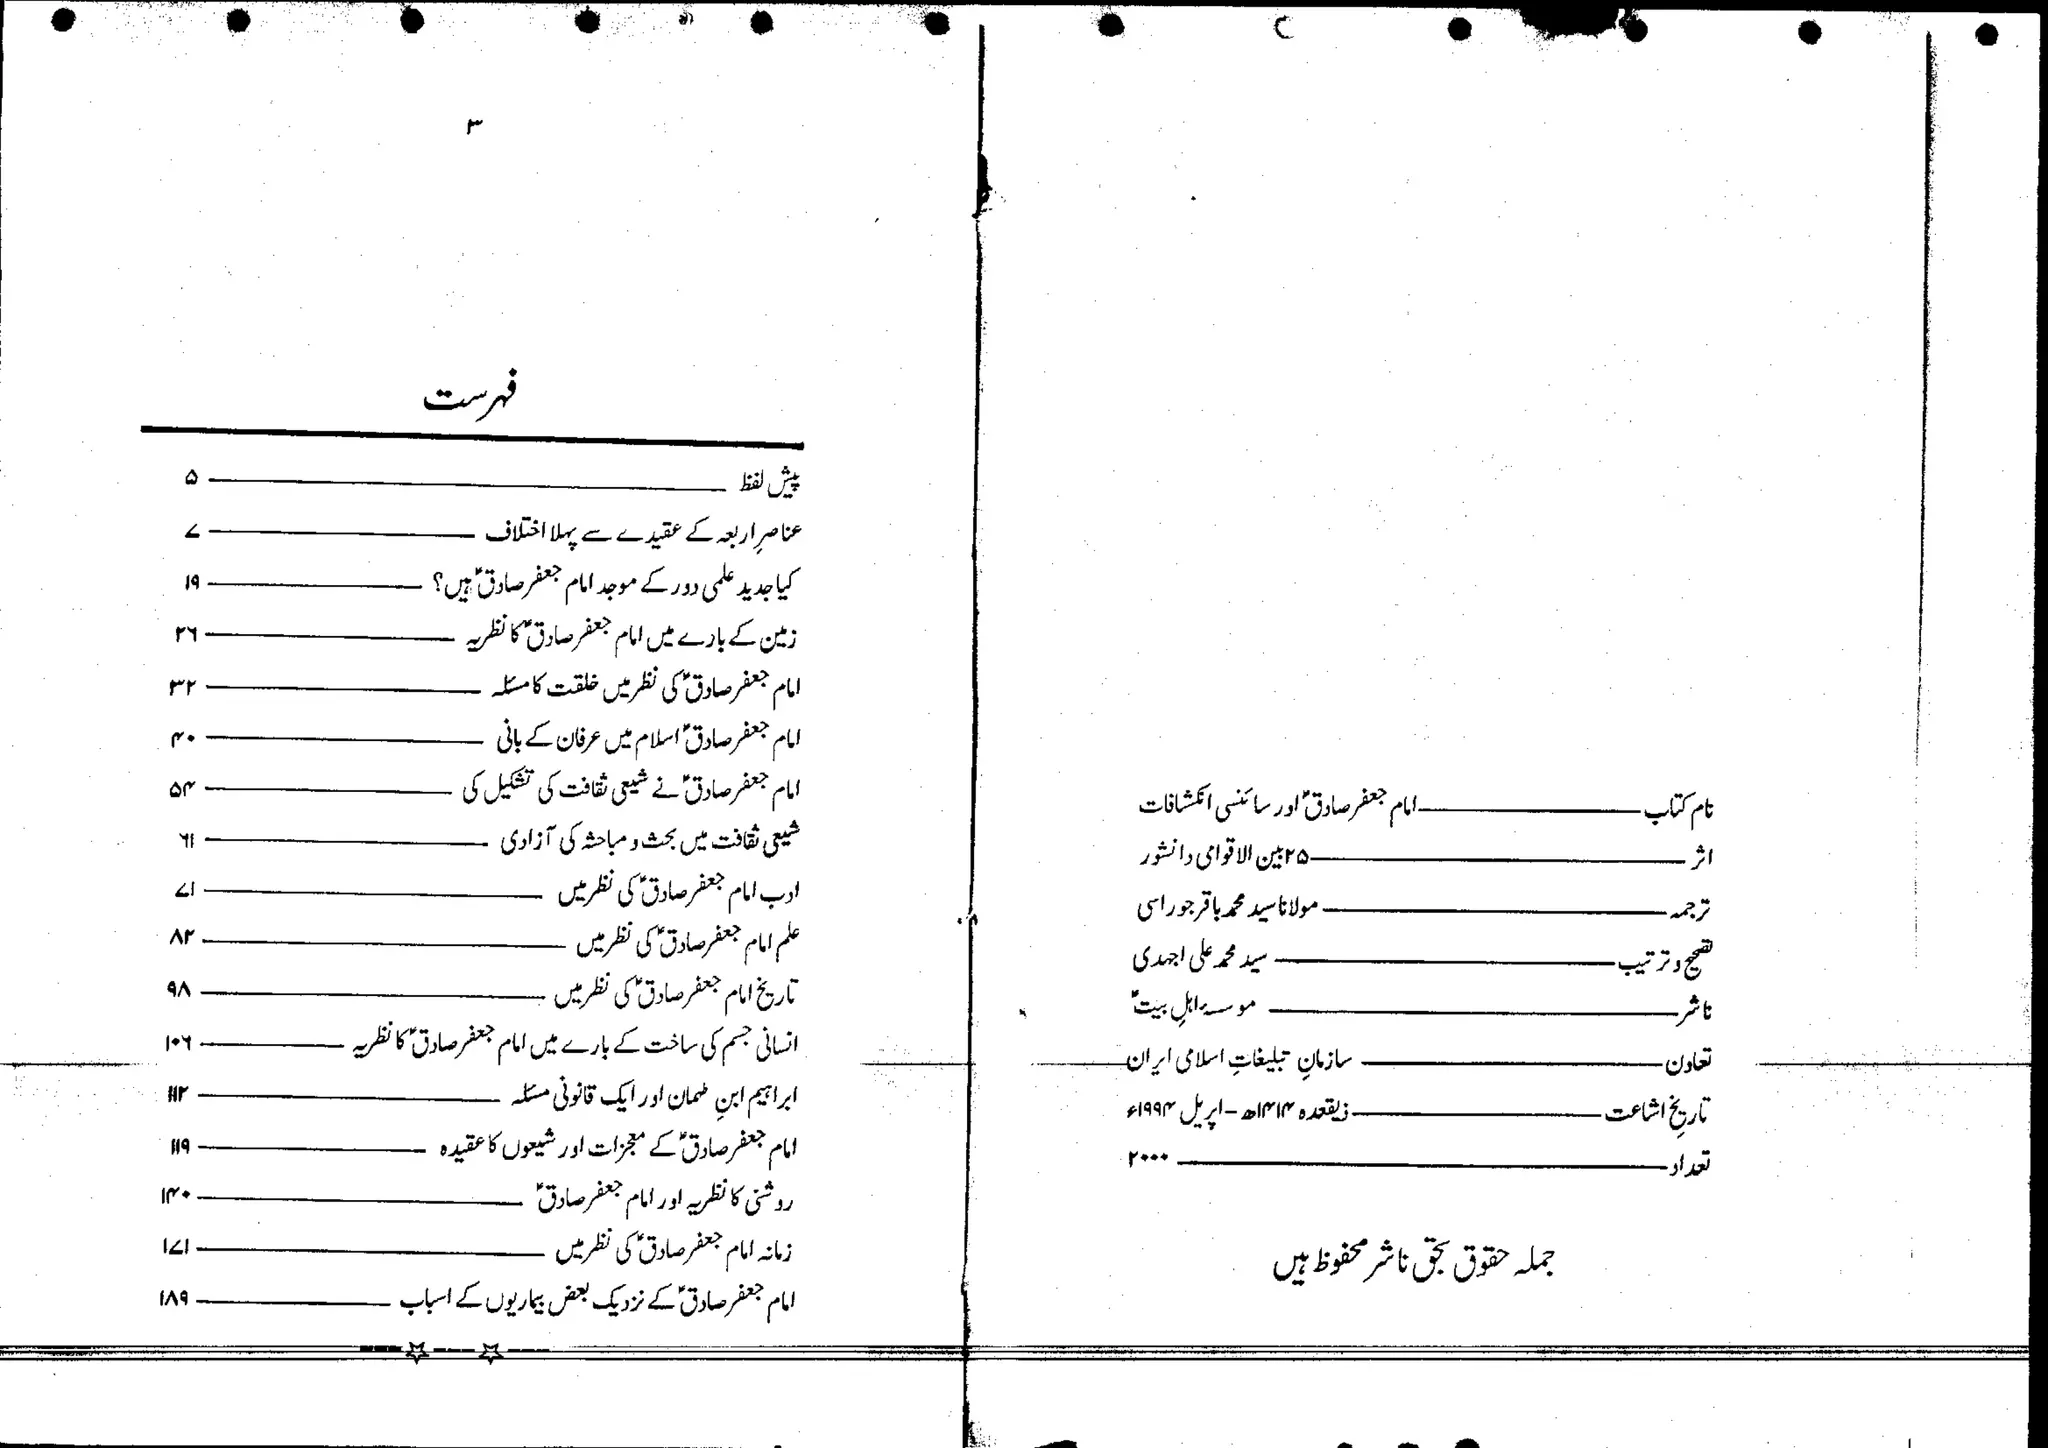 نام کتاب ـــــ امام جعفر صادقؑ اور سائنسی انکشافات
اثر ـــــ ۲۵ بین الاقوامی دانشور
ترجمہ ـــــ مولانا سید محمد باقر جوراسی
تصحیح و ترتیب ـــــ سید محمد علی اجہدی
ناشر ـــــ موسسہ اہلِ بیتؑ
تعاون ـــــ سازمانِ تبلیغاتِ اسلامی ایران
تاریخِ اشاعت ـــــ ذیقعدہ ۱۴۱۴ھ - اپریل ۱۹۹۴ء
تعداد ـــــ ۲۰۰۰
جملہ حقوق بحق ناشر محفوظ ہیں
۳
فہرست
پیش لفظ ـــــ ۵
عناصرِ اربعہ کے عقیدے سے پہلا اختلاف ـــــ ۷
کیا جدید علمی دور کے موجد امام جعفر صادقؑ ہیں؟ ـــــ ۱۹
زمین کے بارے میں امام جعفر صادقؑ کا نظریہ ـــــ ۲۶
امام جعفر صادقؑ کی نظر میں خلقت کا مسئلہ ـــــ ۳۲
امام جعفر صادقؑ اسلام میں عرفان کے بانی ـــــ ۴۰
امام جعفر صادقؑ نے شیعی ثقافت کی تشکیل کی ـــــ ۵۴
شیعی ثقافت میں بحث و مباحثہ کی آزادی ـــــ ۶۱
ادب امام جعفر صادقؑ کی نظر میں ـــــ ۷۱
علم امام جعفر صادقؑ کی نظر میں ـــــ ۸۲
تاریخ امام جعفر صادقؑ کی نظر میں ـــــ ۹۸
انسانی جسم کی ساخت کے بارے میں امام جعفر صادقؑ کا نظریہ ـــــ ۱۰۶
ابراہیم ابنِ طہمان اور ایک قانونی مسئلہ ـــــ ۱۱۲
امام جعفر صادقؑ کے معجزات اور شیعوں کا عقیدہ ـــــ ۱۱۹
روشنی کا نظریہ اور امام جعفر صادقؑ ـــــ ۱۴۰
زمانہ امام جعفر صادقؑ کی نظر میں ـــــ ۱۷۱
امام جعفر صادقؑ کے نزدیک بعض بیماریوں کے اسباب ـــــ ۱۸۹